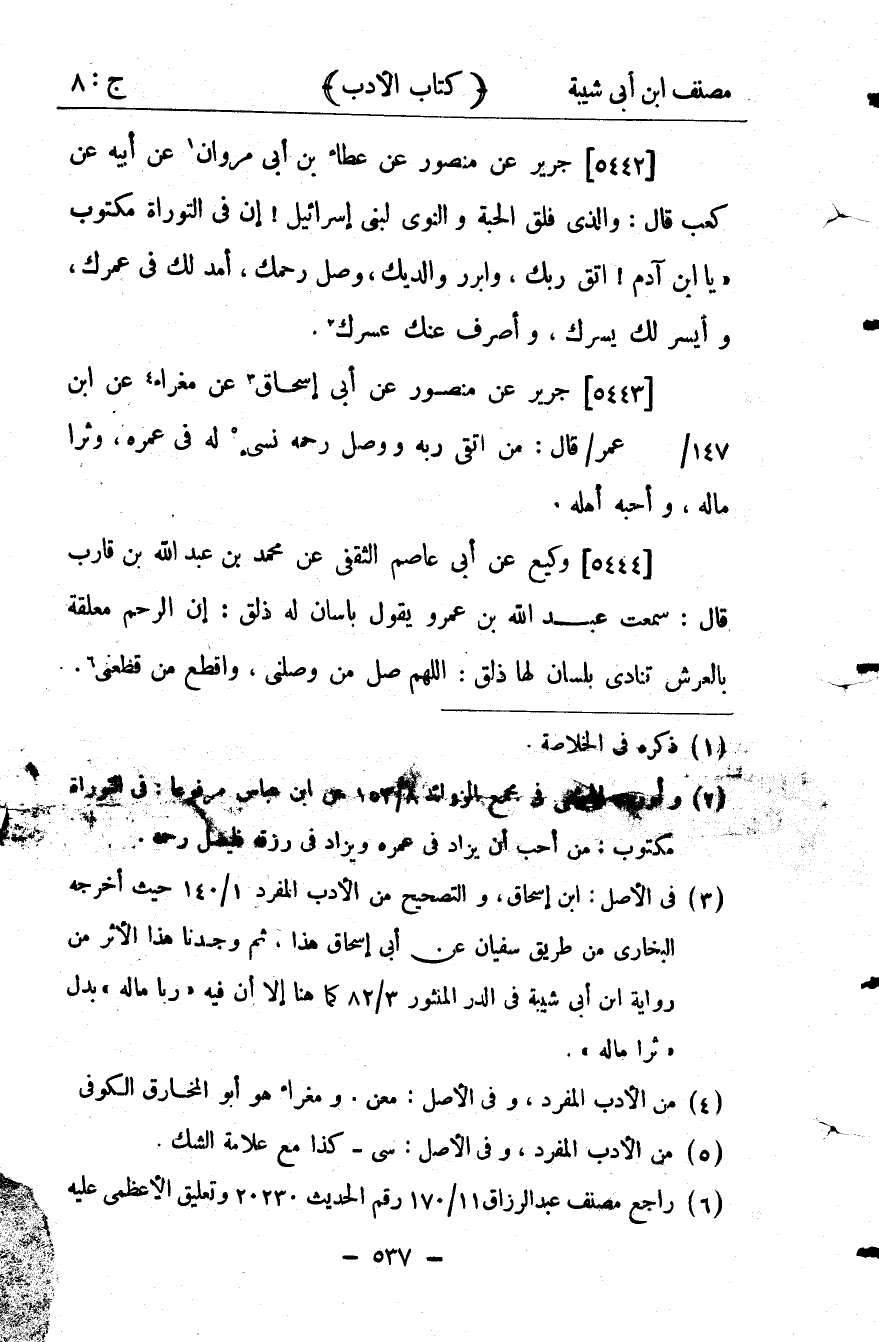 مصنف ابن أبى شيبة ﴿ كتاب الأدب ﴾ ج : ٨
[٥٤٤٢] جرير عن منصور عن عطاء بن أبى مروان١ عن أبيه عن
كعب قال : والذى فلق الحبة و النوى لبنى إسرائيل ! إن فى التوراة مكتوب
« يا ابن آدم ! اتق ربك ، وابرر والديك ، وصل رحمك ، أمد لك فى عمرك ،
و أيسر لك يسرك ، و أصرف عنك عسرك٢ .
[٥٤٤٣] جرير عن منصور عن أبى إسحاق٣ عن مغراء٤ عن ابن
١٤٧/ عمر/ قال : من اتقى ربه و وصل رحمه نسىء٥ له فى عمره ، وثرا
ماله ، و أحبه أهله .
[٥٤٤٤] وكيع عن أبى عاصم الثقفى عن محمد بن عبد الله بن قارب
قال : سمعت عبد الله بن عمرو يقول باسان له ذلق : إن الرحم معلقة
بالعرش تنادى بلسان لها ذلق : اللهم صل من وصلنى ، واقطع من قظعنى٦ .
(١) ذكره فى الخلاصة .
(٢) و أورده الهيثمى فى مجمع الزوائد ١٥٣/٨ عن ابن عباس مرفوعا : فى التوراة
مكتوب : من أحب أن يزاد فى عمره ويزاد فى رزقه فليصل رحمه .
(٣) فى الأصل : ابن إسحاق ، و التصحيح من الأدب المفرد ١٤٠/١ حيث أخرجه
البخارى من طريق سفيان عن أبى إسحاق هذا ، ثم وجدنا هذا الأثر من
رواية ابن أبى شيبة فى الدر المنثور ٨٢/٣ كما هنا إلا أن فيه « ربا ماله » بدل
« ثرا ماله » .
(٤) من الأدب المفرد ، و فى الأصل : معن . و مغراء هو أبو المخارق الكوفى
(٥) من الأدب المفرد ، و فى الأصل : سى ـ كذا مع علامة الشك .
(٦) راجع مصنف عبدالرزاق ١٧٠/١١ رقم الحديث ٢٠٢٣٠ وتعليق الأعظمى عليه
– ٥٣٧ –